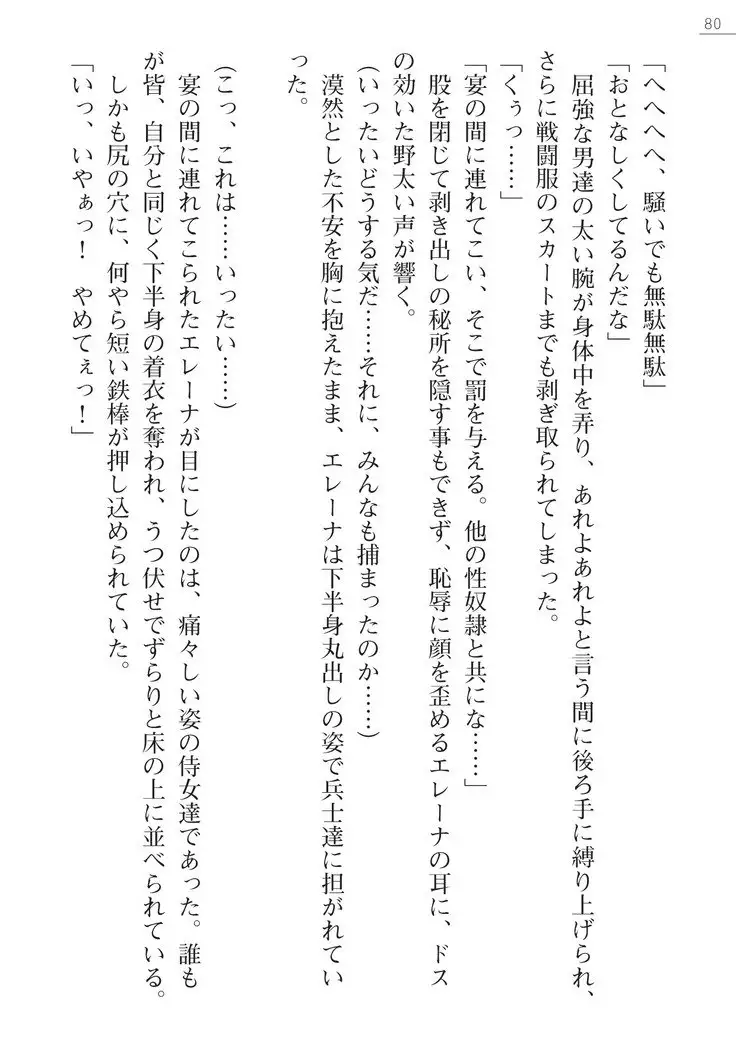 80
「へへへへ、騒いでも無駄無駄」
「おとなしくしてるんだな」
屈強な男達の太い腕が身体中を弄り、あれよあれよと言う間に後ろ手に縛り上げられ、
さらに戦闘服のスカートまでも剥ぎ取られてしまった。
「くぅっ……」
「宴の間に連れてこい、そこで罰を与える。他の性奴隷と共にな……」
股を閉じて剥き出しの秘所を隠す事もできず、恥辱に顔を歪めるエレーナの耳に、ドス
の効いた野太い声が響く。
（いったいどうする気だ……それに、みんなも捕まったのか……）
漠然とした不安を胸に抱えたまま、エレーナは下半身丸出しの姿で兵士達に担がれてい
った。
（こっ、これは……いったい……）
宴の間に連れてこられたエレーナが目にしたのは、痛々しい姿の侍女達であった。誰も
が皆、自分と同じく下半身の着衣を奪われ、うつ伏せでずらりと床の上に並べられている。
しかも尻の穴に、何やら短い鉄棒が押し込められていた。
「いっ、いやぁっ！　やめてぇっ！」